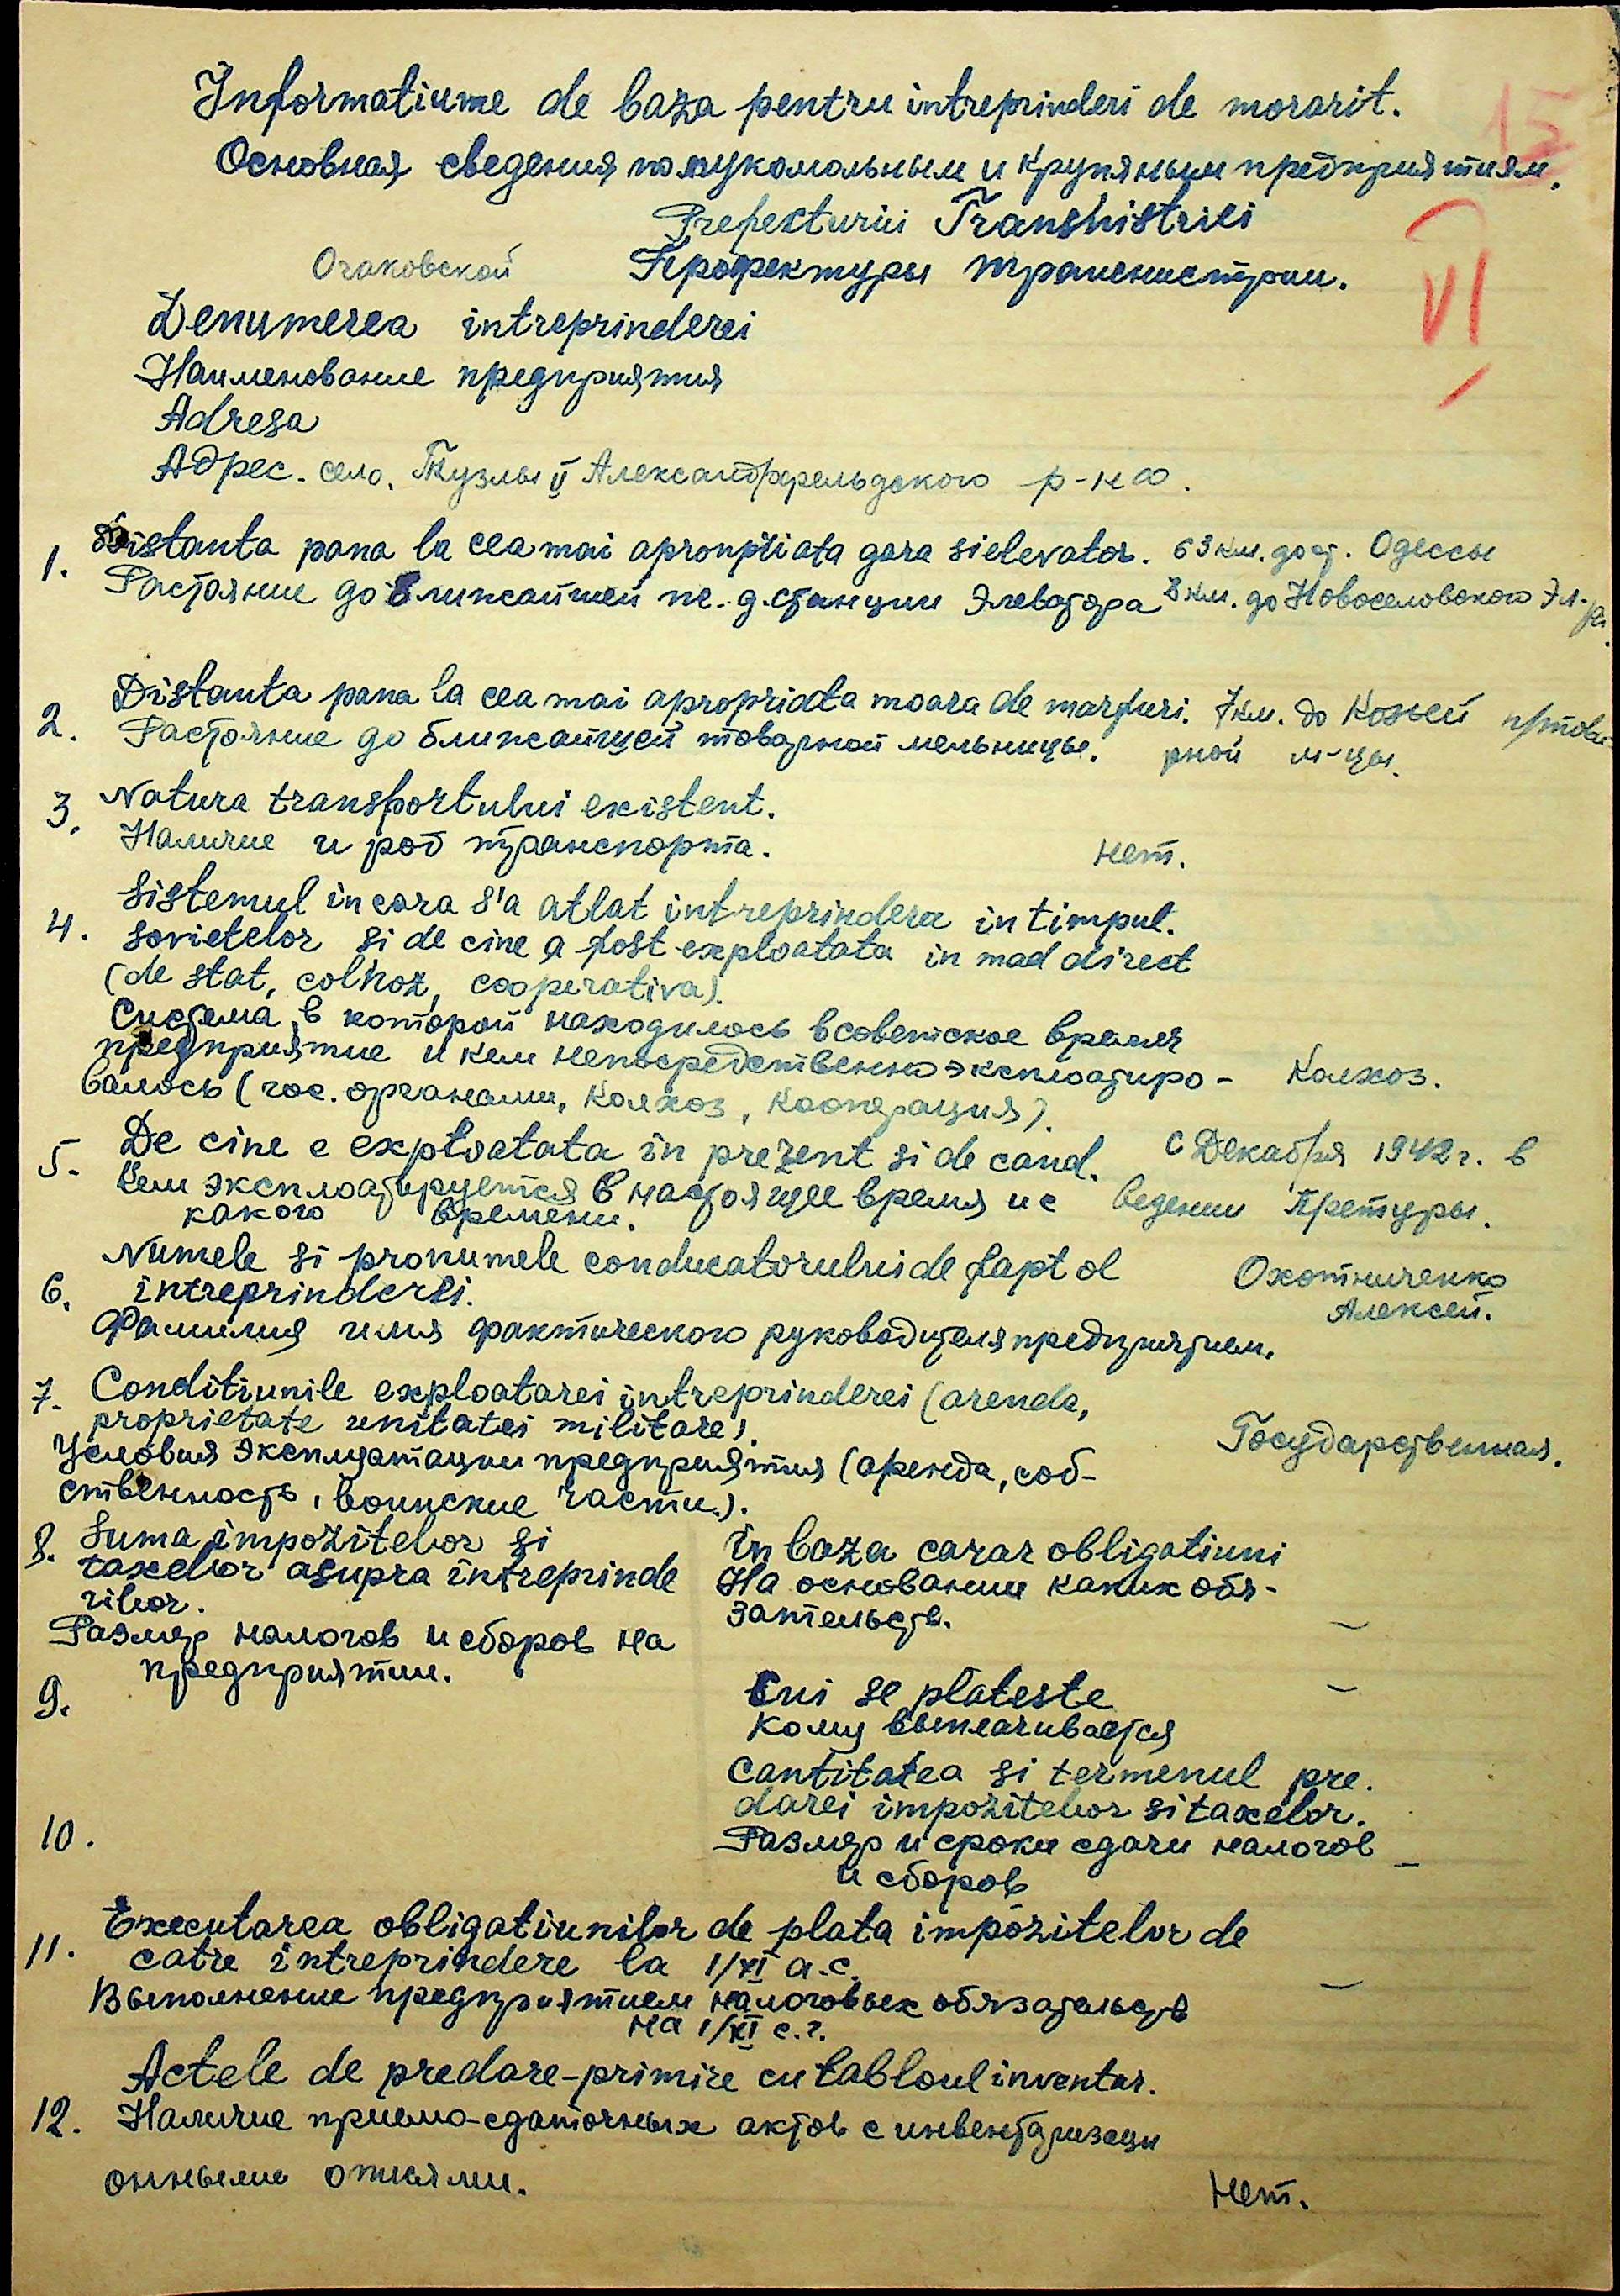 Informatiume de baza pentru intreprinderi de morarit.
15
Основная сведения по мукомольным и крупяным предприятиям.
Prefecturii Transnistriei
Очаковской Профектуры транснистрии.
VI
Denumerea intreprinderei
Наименование предприятия
Adresa
Адрес. село. Тузлы II Александрфельдского р-на.
1. Distanta pana la cea mai apronpriata gara si elevator. 63 км. до ст. Одессы
Растояние до ближайшей ж.д. станции Элеватора 8 км. до Новоселовского Эл-ра.
2. Distanta pana la cea mai apropriata moara de marfuri. 7 км. до Козьей п/товар-
Растояние до ближайщей товарной мельницы. рной м-цы.
3. Natura transportului existent.
Наличие и род траанспорта. нет.
4. Sistemul in cara s'a atlat intreprinderea in timpul.
sovietelor si de cine a fost exploatata in mad direct
(de stat, colhoz, cooperativa).
Система, в которой находилось в советское время
предприятие и кем непосредственно эксплоатиро- Колхоз.
валось (гос. органами, Колхоз, Кооперация).
5. De cine e exploatata in prezent si de cand. с Декабря 1942 г. в
Кем эксплоатируется в настоящее время и с ведении Претуры.
какого времени.
Numele si pronumele conducatorului de fapt al Охотниченко
6. intreprinderei. Алексей.
Фамилия имя фактического руководителя предприятием.
7. Conditiunile exploatarei intreprinderei (arenda,
proprietate unitatei militare). Государственная.
Условия Эксплуатации предприятия (аренда, соб-
ственность, воинские части.).
8. Suma impozitelor si in baza carar obligatiuni
taxelor asupra intreprinde На основании каких обя-
rilor. зательств. –
Размер налогов и сборов на
предприятии.
9. Cui se plateste –
Кому выплачивается
Cantitatea si termenul pre.
darei impozitelor si taxelor.
10. Размер и сроки сдачи налогов –
и сборов
Executarea obligatiunilor de plata impozitelor de
11. catre intreprindere la 1/XI a.c. –
Выполнение предприятием налоговых обязательств
на 1/XI с.г.
Actele de predare-primire cu tabloul inventar.
12. Наличие приемо-сдаточных актов с инвентаризаци
онными описями. Нет.